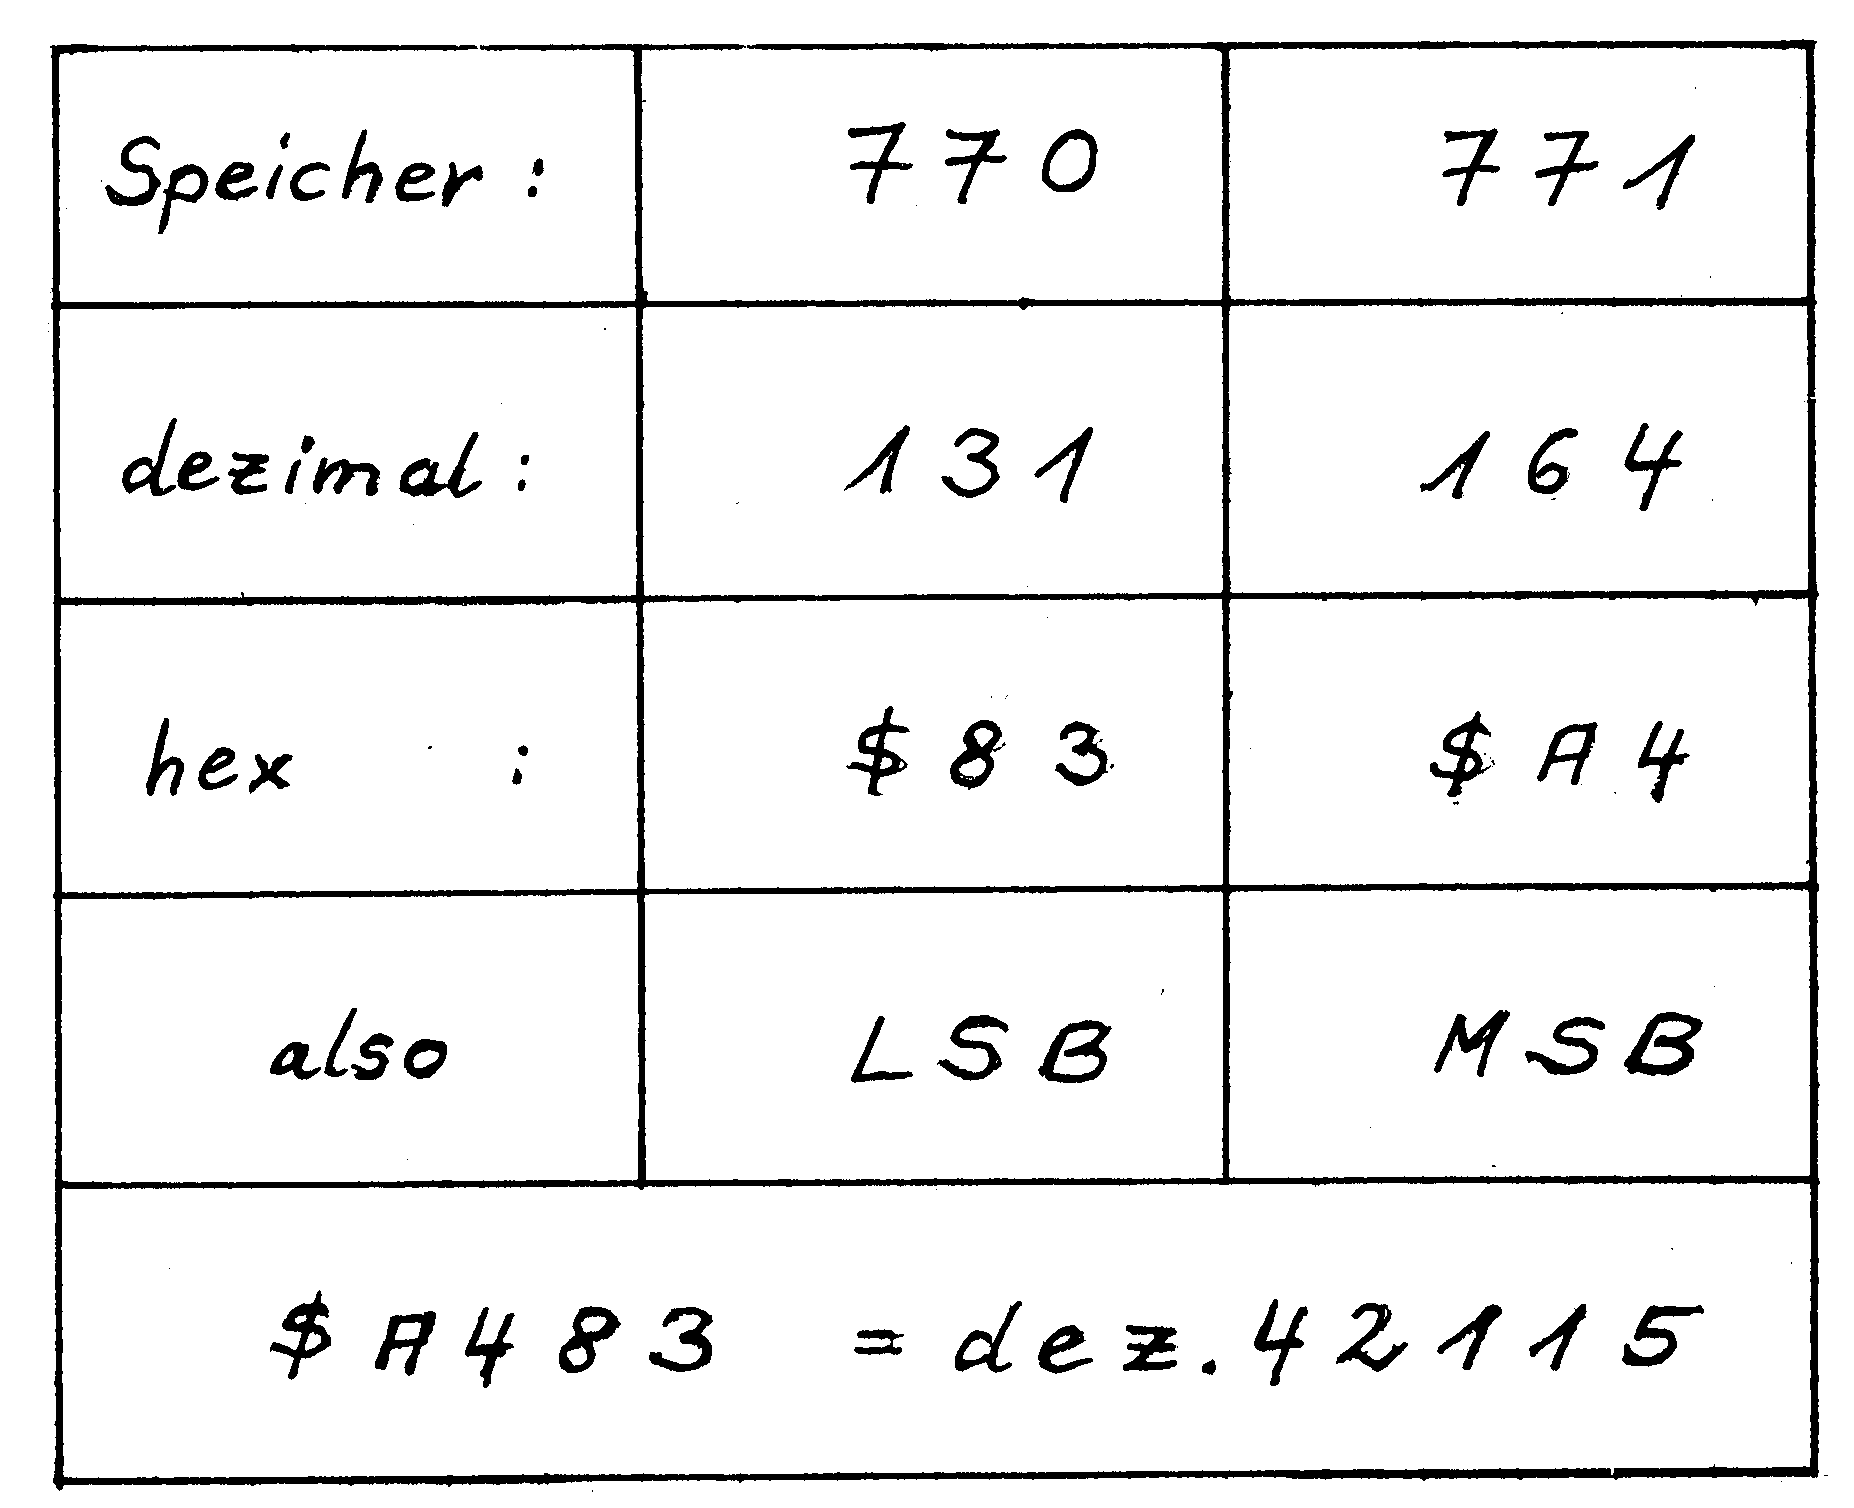 Speicher: 770 771
dezimal: 131 164
hex : $83 $A4
also LSB MSB
$A483 = dez. 42115